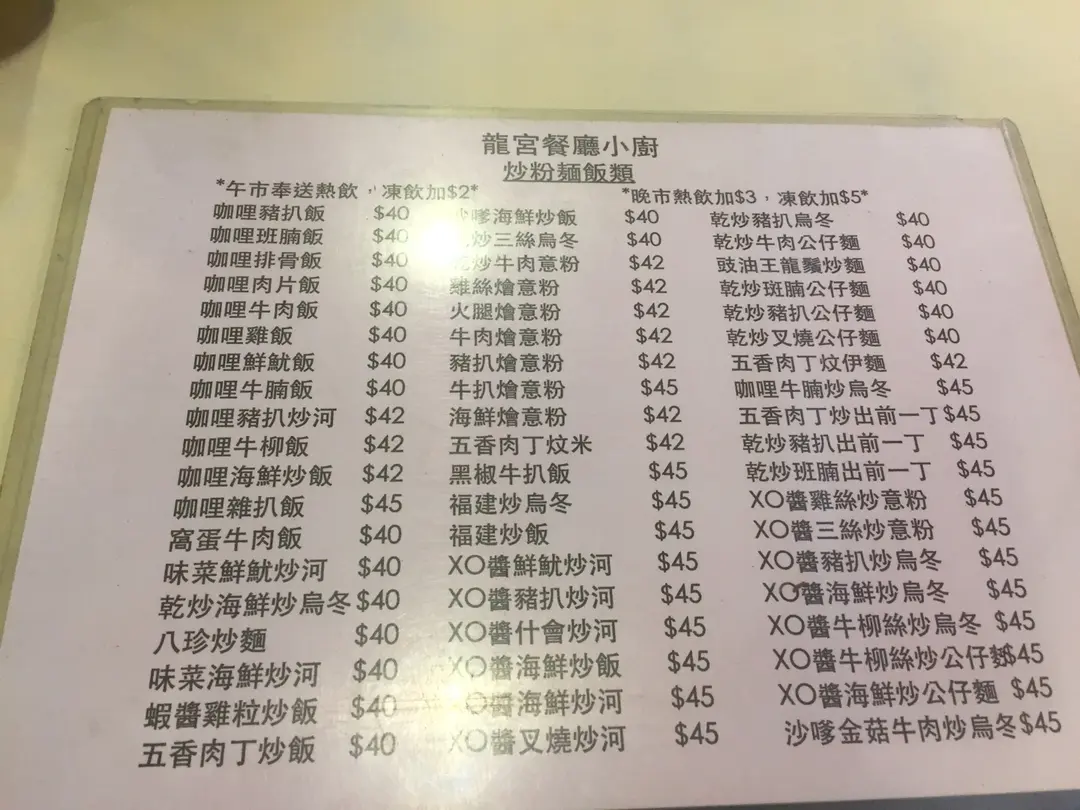 龍宮餐廳小廚
炒粉麵飯類
*午市奉送熱飲，凍飲加$2*
*晚市熱飲加$3，凍飲加$5*
咖哩豬扒飯 $40
咖哩班腩飯 $40
咖哩排骨飯 $40
咖哩肉片飯 $40
咖哩牛肉飯 $40
咖哩雞飯 $40
咖哩鮮魷飯 $40
咖哩牛腩飯 $40
咖哩豬扒炒河 $42
咖哩牛柳飯 $42
咖哩海鮮炒飯 $42
咖哩雜扒飯 $45
窩蛋牛肉飯 $40
味菜鮮魷炒河 $40
乾炒海鮮炒烏冬 $40
八珍炒麵 $40
味菜海鮮炒河 $40
蝦醬雞粒炒飯 $40
五香肉丁炒飯 $40
沙嗲海鮮炒飯 $40
炒三絲烏冬 $40
炒牛肉意粉 $42
雞絲燴意粉 $42
火腿燴意粉 $42
牛肉燴意粉 $42
豬扒燴意粉 $42
牛扒燴意粉 $45
海鮮燴意粉 $42
五香肉丁炆米 $42
黑椒牛扒飯 $45
福建炒烏冬 $45
福建炒飯 $45
XO醬鮮魷炒河 $45
XO醬豬扒炒河 $45
XO醬什會炒河 $45
XO醬海鮮炒飯 $45
XO醬海鮮炒河 $45
XO醬叉燒炒河 $45
乾炒豬扒烏冬 $40
乾炒牛肉公仔麵 $40
豉油王龍鬚炒麵 $40
乾炒班腩公仔麵 $40
乾炒豬扒公仔麵 $40
乾炒叉燒公仔麵 $40
五香肉丁炆伊麵 $42
咖哩牛腩炒烏冬 $45
五香肉丁炒出前一丁 $45
乾炒豬扒出前一丁 $45
乾炒班腩出前一丁 $45
XO醬雞絲炒意粉 $45
XO醬三絲炒意粉 $45
XO醬豬扒炒烏冬 $45
XO醬海鮮炒烏冬 $45
XO醬牛柳絲炒烏冬 $45
XO醬牛柳絲炒公仔麵 $45
XO醬海鮮炒公仔麵 $45
沙嗲金菇牛肉炒烏冬 $45